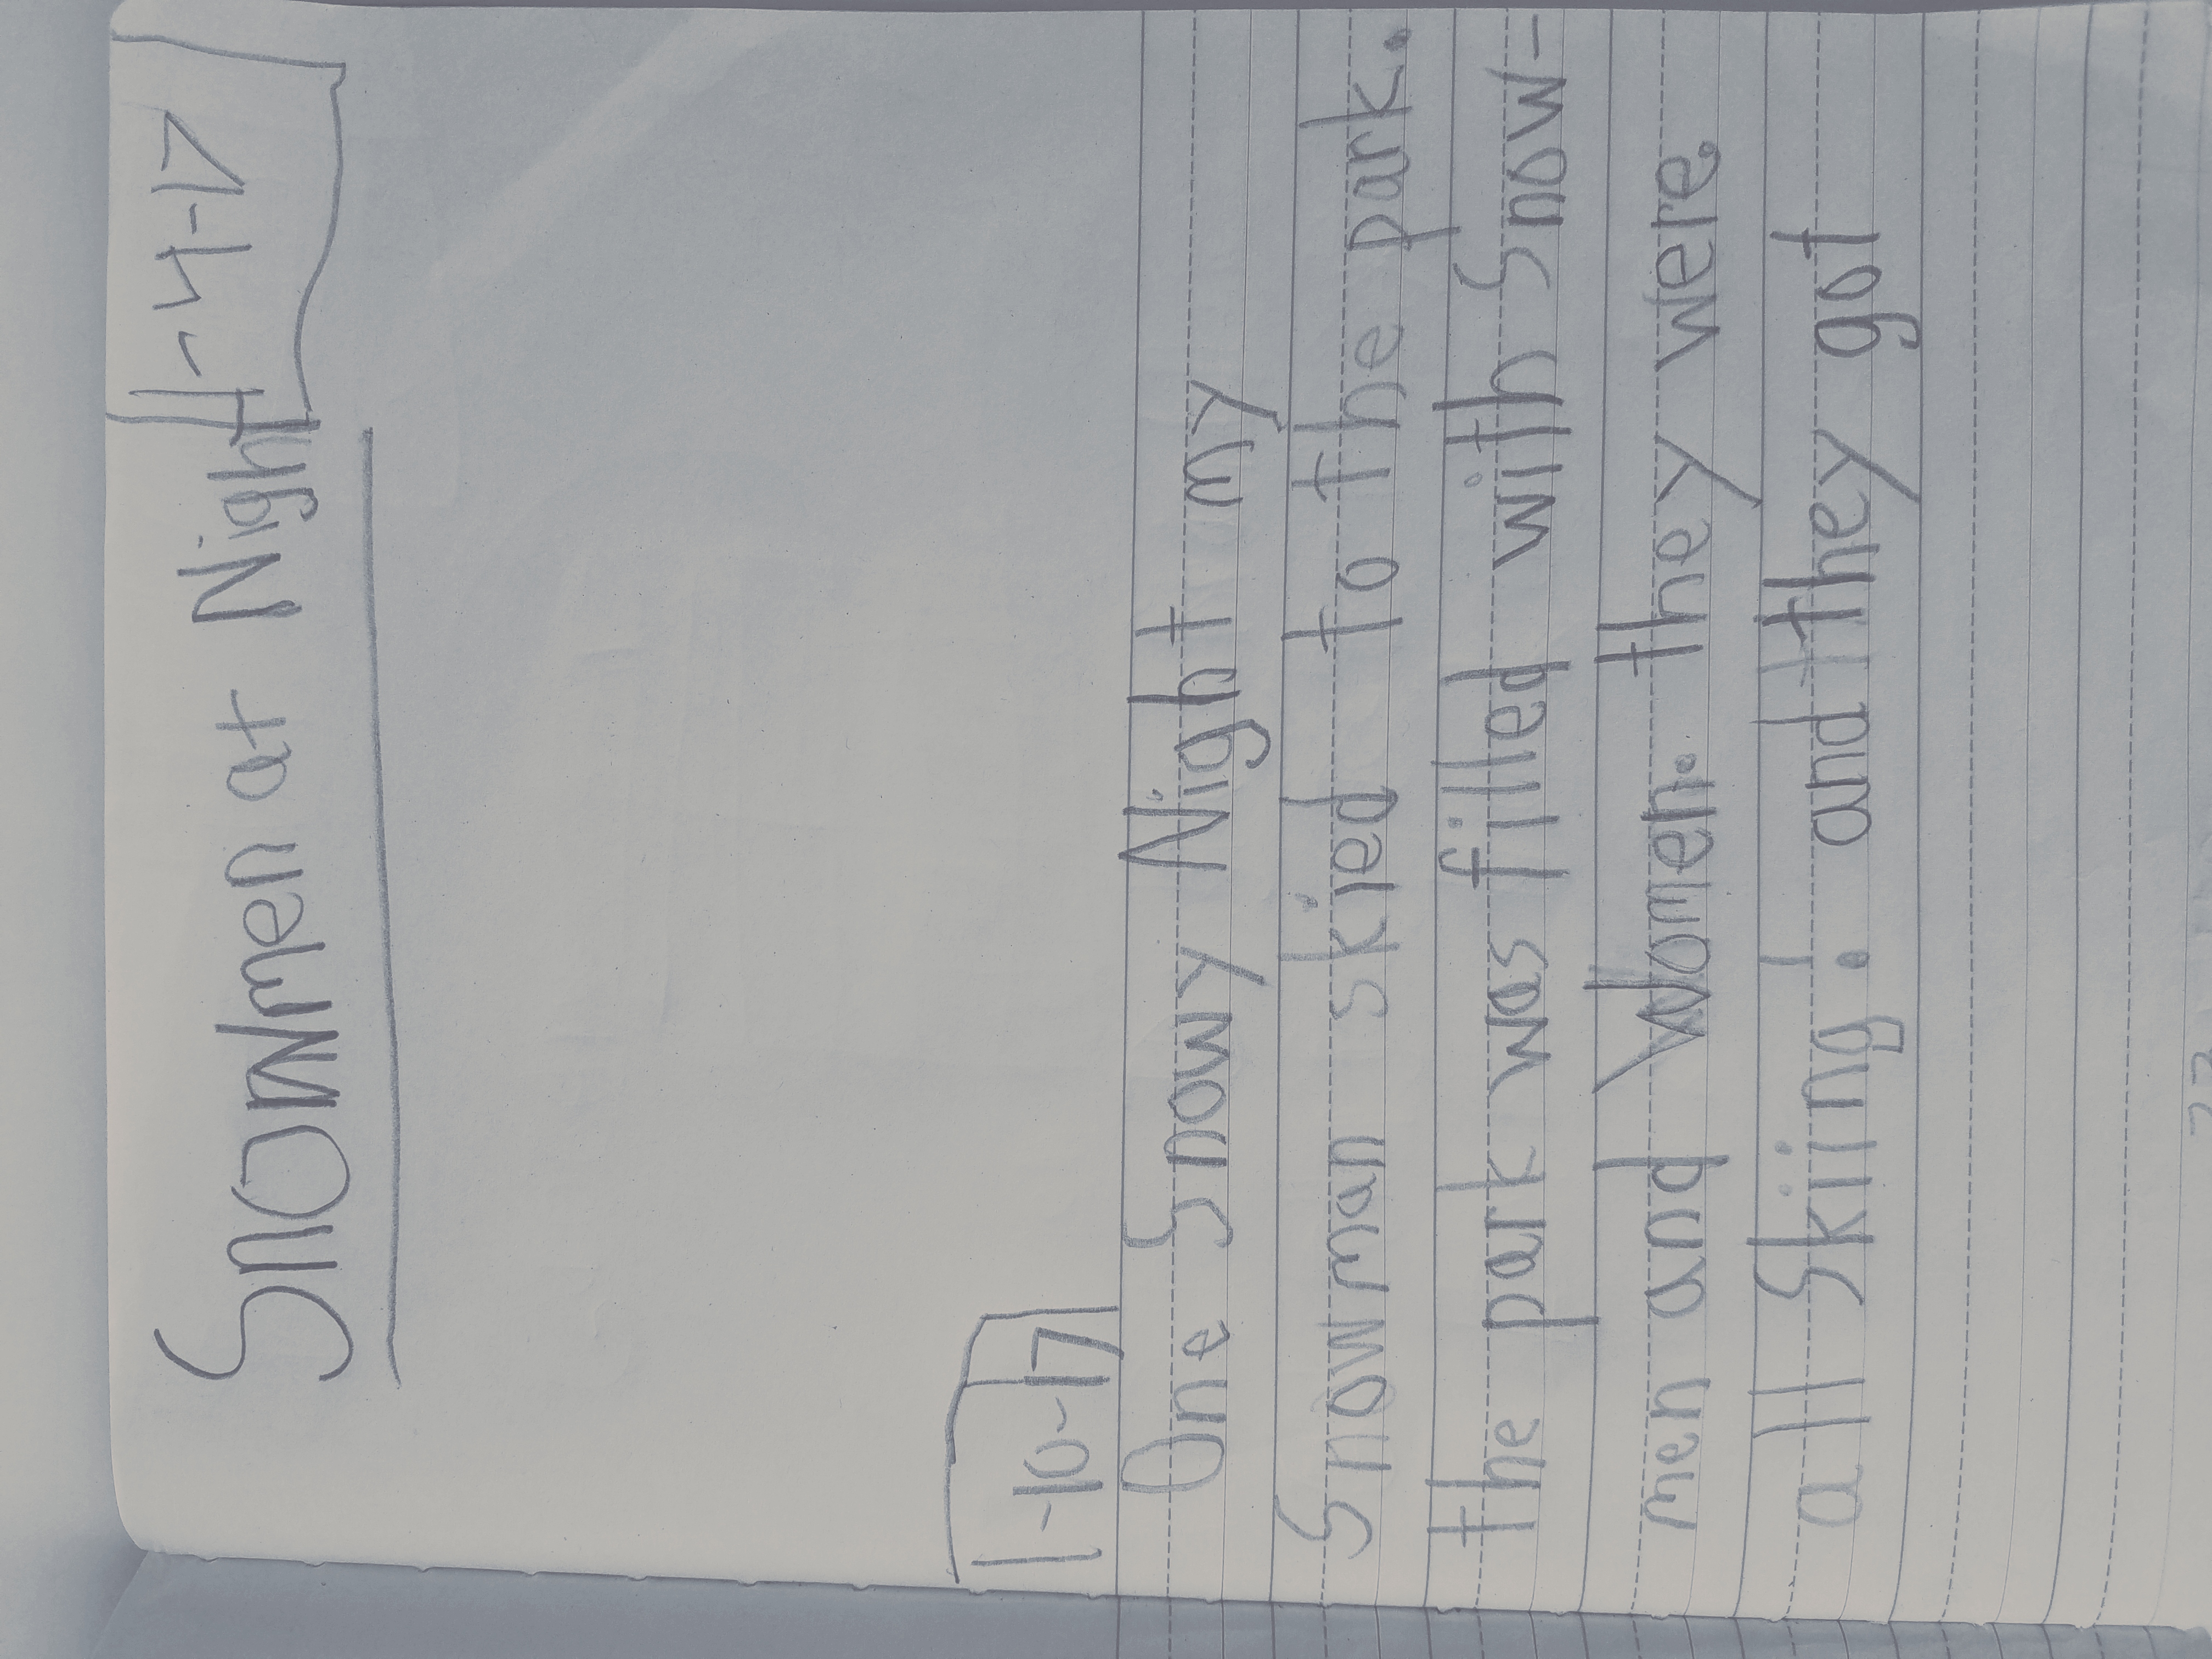 Snowmen at Night
1-4-17
1-10-17
One Snowy Night my
Snowman skied to the park.
the park was filled with Snow-
men and Women. they were
all Skiing. and they got